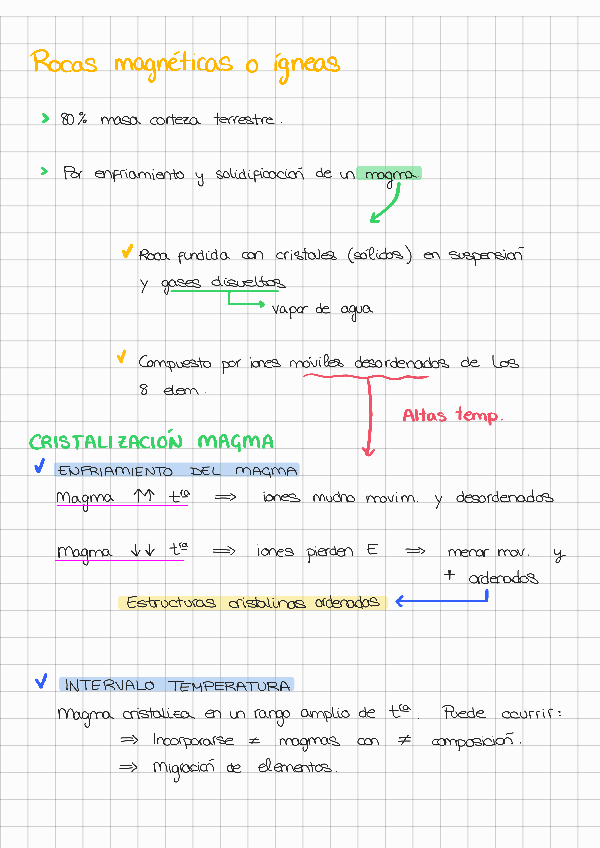 Rocas magnéticas o ígneas
> 80% masa corteza terrestre.
> Por enfriamiento y solidificación de un magma
✓ Roca fundida con cristales (sólidos) en suspensión
y gases disueltos
vapor de agua
✓ Compuesto por iones móviles desordenados de los
8 elem.
Altas temp.
CRISTALIZACIÓN MAGMA
✓ ENFRIAMIENTO DEL MAGMA
Magma ↑↑ tra ⇒ iones mucho movim. y desordenados
Magma ↓↓ tra ⇒ iones pierden E ⇒ menor mov. y
+ ordenados
Estructuras cristalinas ordenadas
✓ INTERVALO TEMPERATURA
Magma cristaliza en un rango amplio de tra. Puede ocurrir:
⇒ Incorporarse ≠ magmas con ≠ composición.
⇒ Migración de elementos.